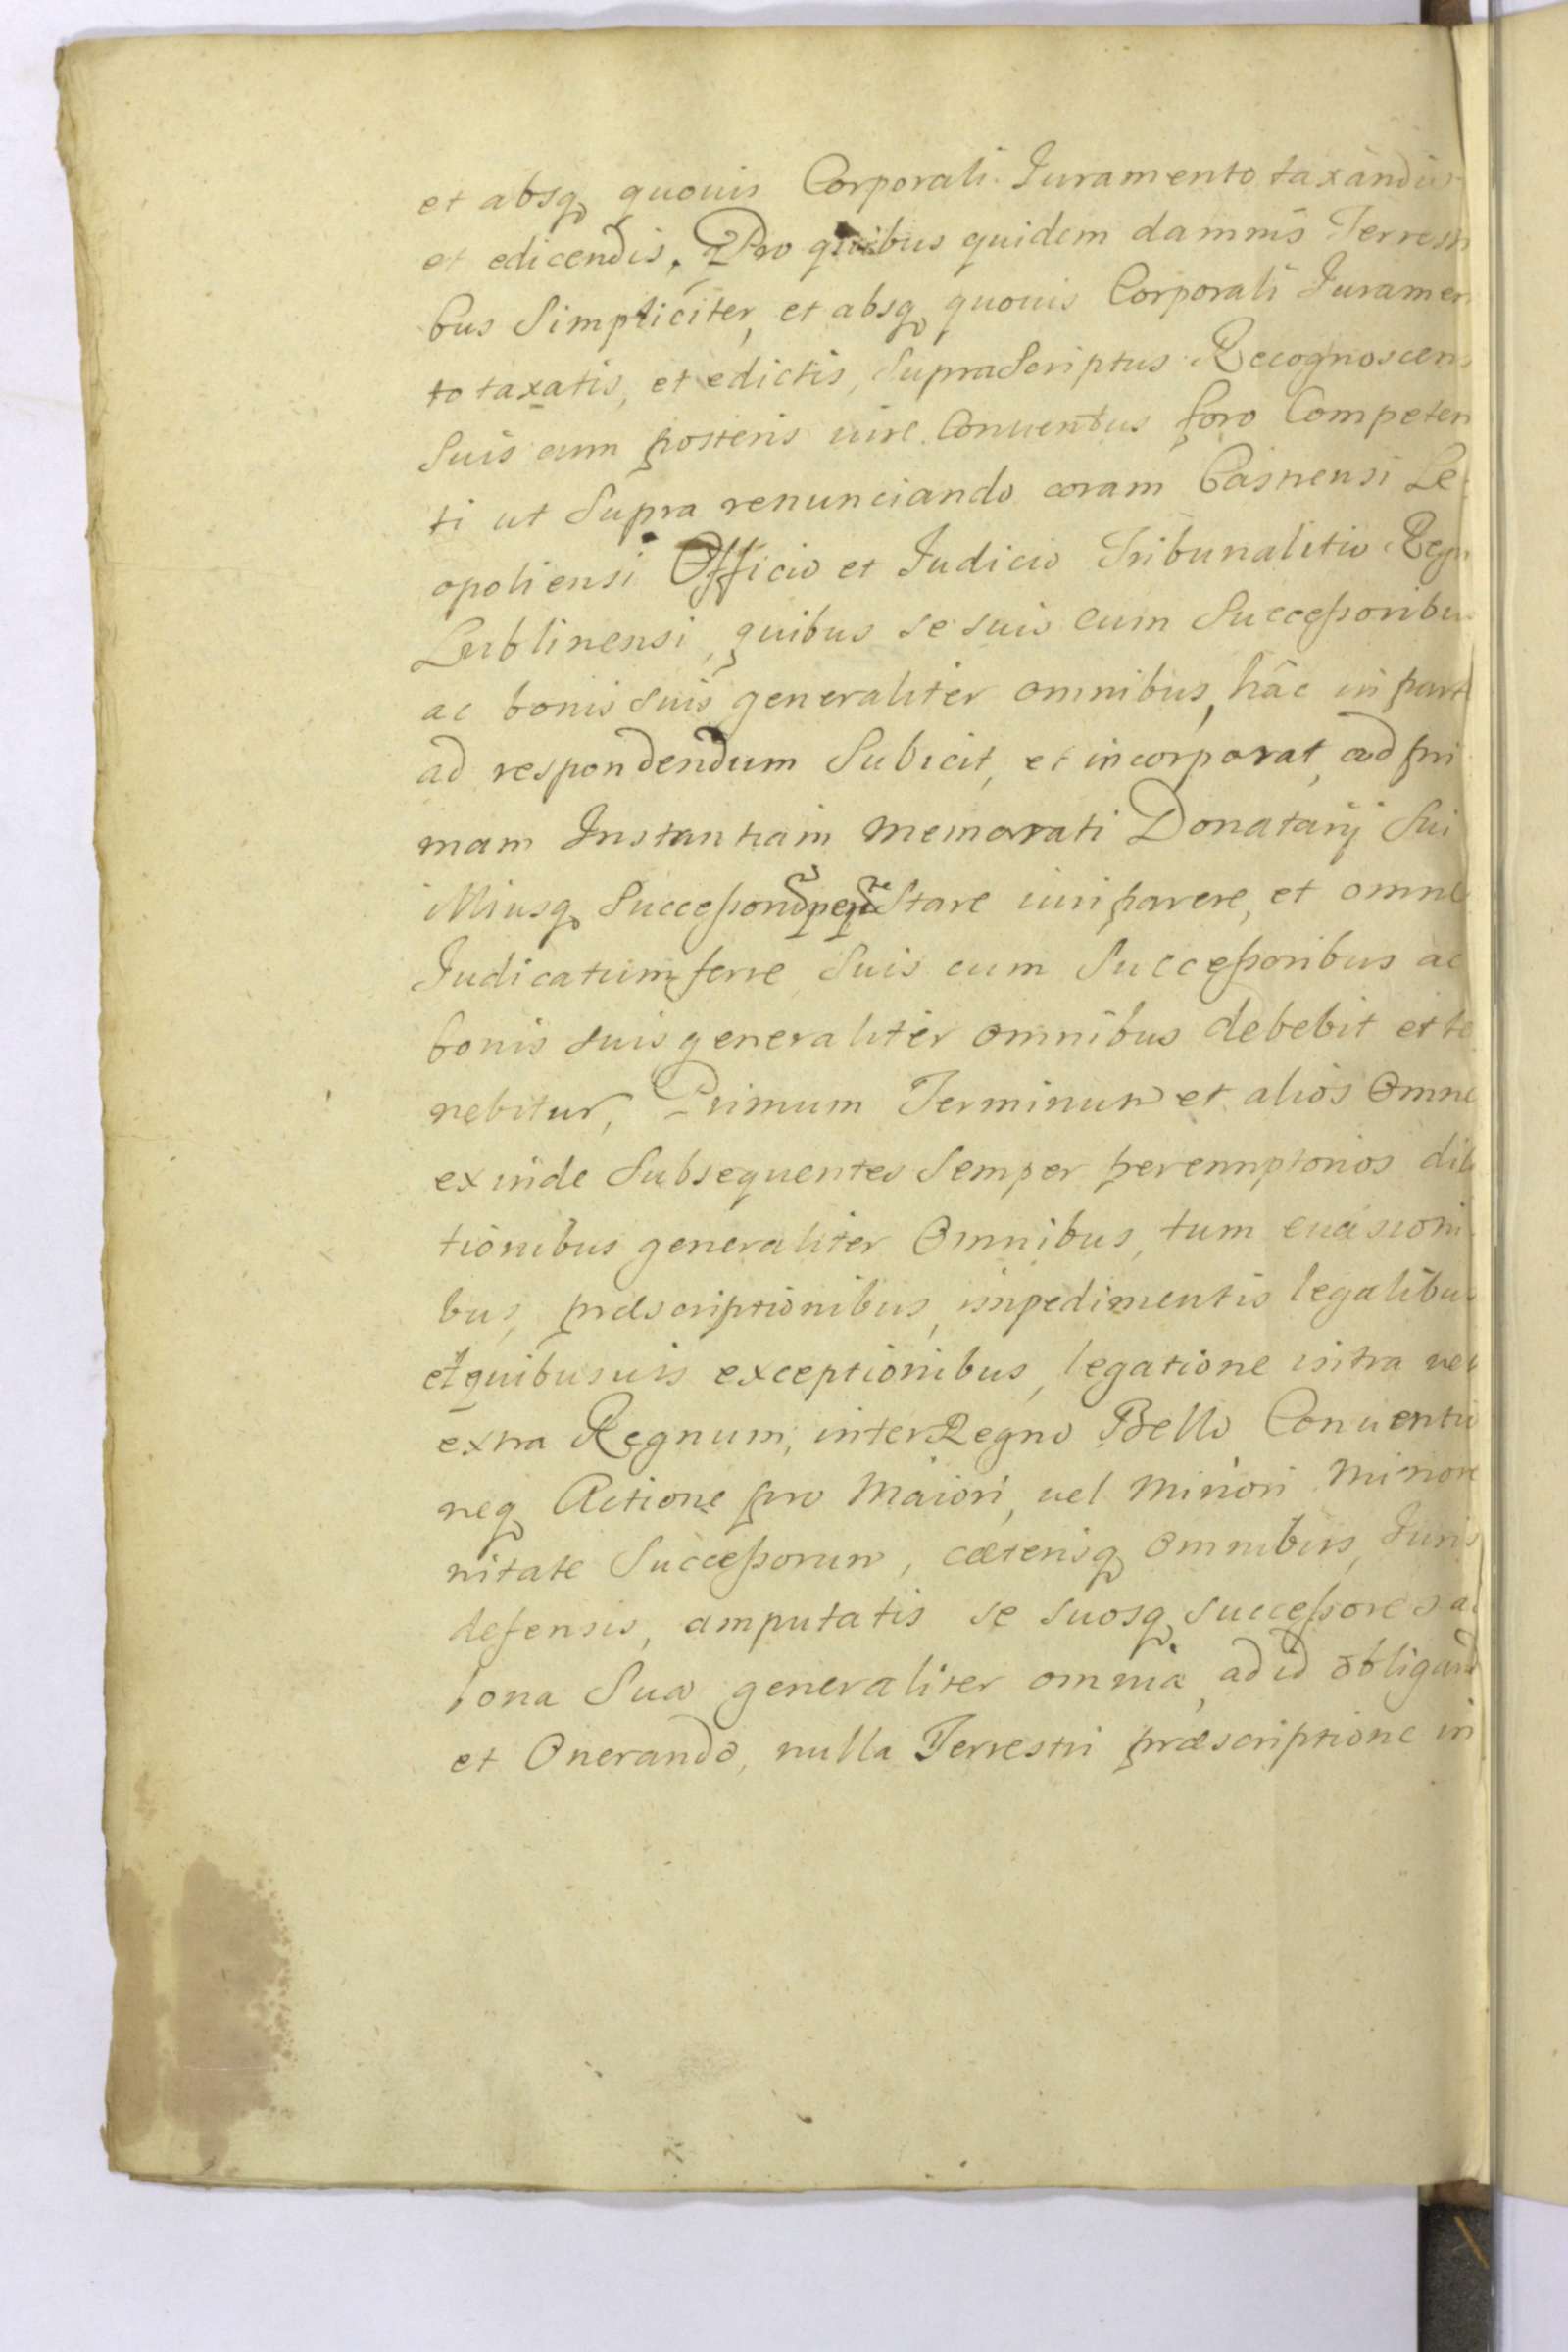 et absq quouis Corporali Iuramento taxandis
et edicendis, Pro quibus quidem damnis Terrestri
bus Simpliciter, et absq quouis Corporali Iuramen
to taxatis, et edictis, SupraScriptus Recognoscens
Suis cum posteris iure Conuentus foro Competen
ti ut Supra renunciando coram Castrensi Le
opoliensi Officio et Iudicio Tribunalitio Regni
Lublinensi, quibus se suis cum Successoribus
ac bonis suis generaliter omnibus, hâc in parte
ad respondendum Subicit, et incorporat, ad pri
mam Instantiam memorati Donatarij Sui
illiusq Successorum Stare iuri parere, et omne
Iudicatum ferre Suis cum Successoribus ac
bonis suis generaliter omnibus debebit et te
nebitur, Primum Terminum et alios Omnes
exinde Subsequentes Semper peremptorios dila
tionibus generaliter Omnibus, tum euasioni
bus, præscriptionibus, impedimentis legalibus
et quibusuis exceptionibus, legatione intra uel
extra Regnum, interRegno Bello Conuentu
neq Actione pro Maiori, uel Minori Minore
nitate Successorum, cæterisq Omnibus, Iuris
defensis, amputatis se suosq successores ac
bona Sua generaliter omnia, ad id obligando
et Onerando, nulla Terrestri præscriptione in